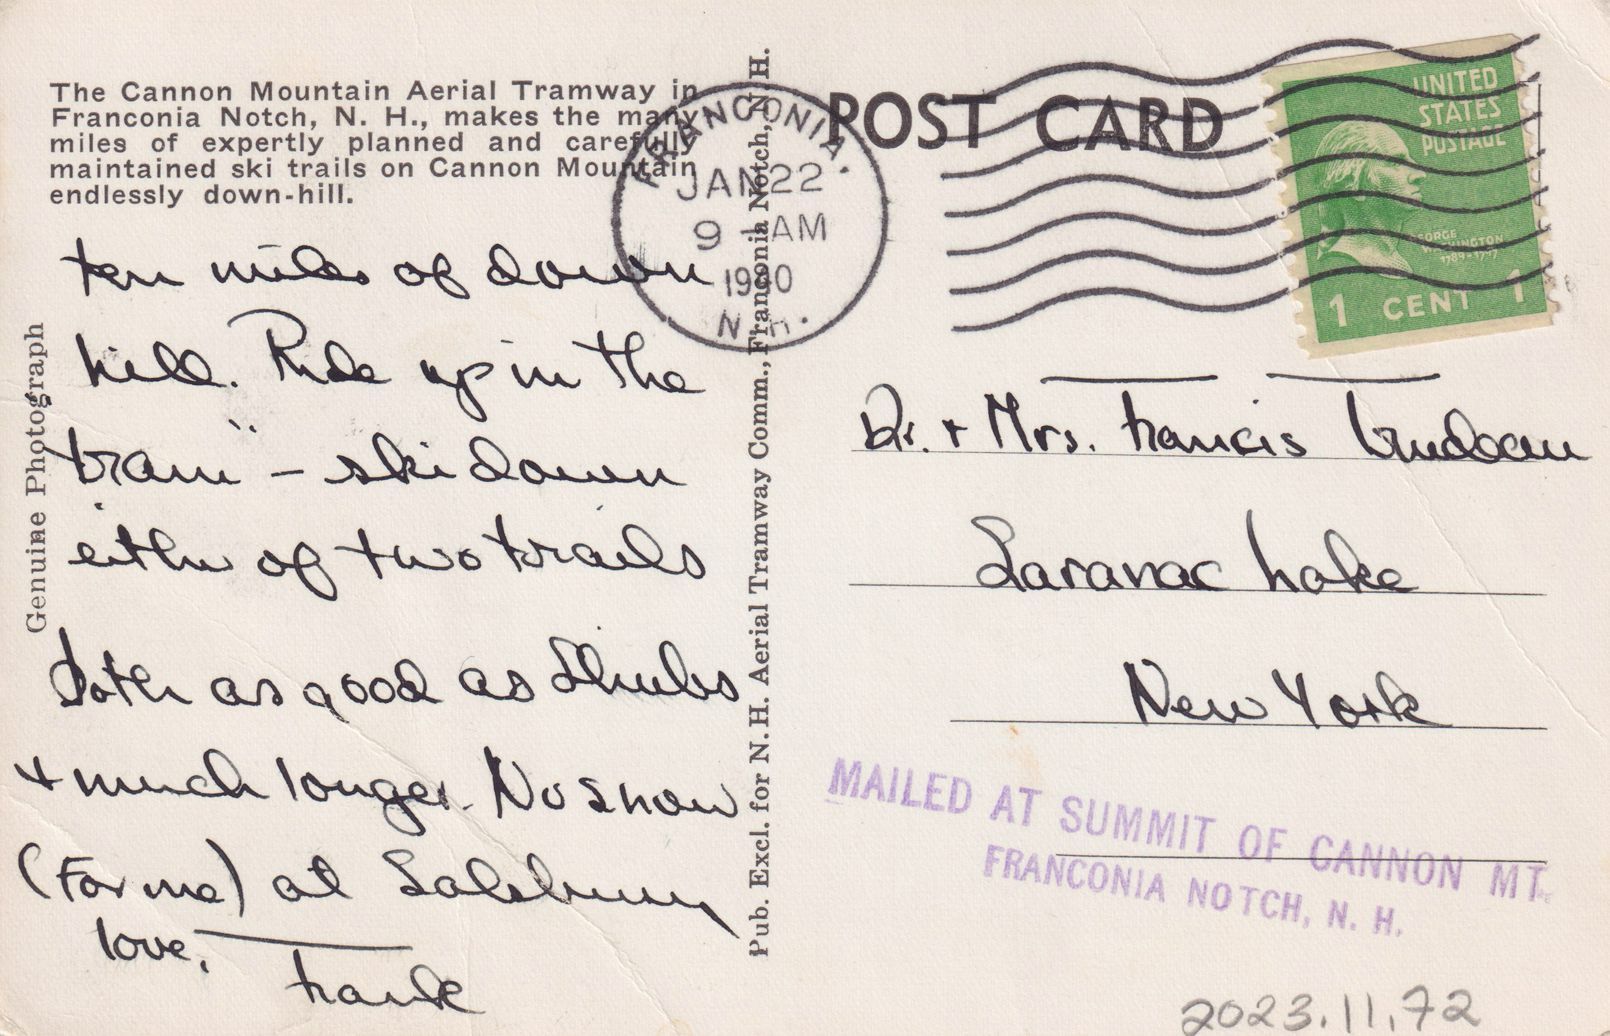 The Cannon Mountain Aerial Tramway in
Franconia Notch, N. H., makes the many
miles of expertly planned and carefully
maintained ski trails on Cannon Mountain
endlessly down-hill.
ten miles of down
hill. Ride up in the
tram" – ski down
either of two trails
both as good as Thubs
+ much longer. No snow
(For me) at Salsbury
love,
Frank
Genuine Photograph
Pub. Excl. for N. H. Aerial Tramway Comm., Franconia Notch, N. H.
FRANCONIA.
JAN 22
9 - AM
1940
N.H.
POST CARD
UNITED
STATES
POSTAGE
GEORGE
WASHINGTON
1789-1797
1 CENT 1
Dr. + Mrs. Francis Trudeau
Saranac Lake
New York
MAILED AT SUMMIT OF CANNON MT.
FRANCONIA NOTCH, N. H.
2023.11.72